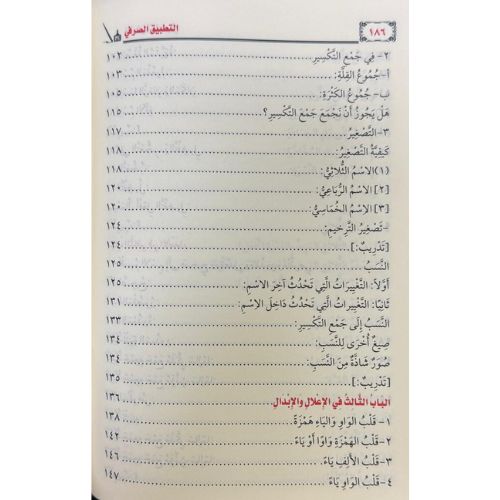 ١٨٦ التطبيق الصرفي
٢- فِي جَمْعِ التَّكْسِيرِ ١٠٢
أ- جُمُوعُ القِلَّةِ: ١٠٣
ب- جُمُوعُ الكَثْرَةِ: ١٠٥
هَلْ يَجُوزُ أَنْ نَجْمَعَ جَمْعَ التَّكْسِيرِ؟ ١١٥
٣- التَّصْغِيرُ ١١٧
كَيْفِيَّةُ التَّصْغِيرِ: ١١٨
(١) الاسْمُ الثُّلاثِيُّ: ١١٨
[٢] الاسْمُ الرُّبَاعِيُّ: ١٢٠
[٣] الاسْمُ الخُمَاسِيُّ: ١٢٠
- تَصْغِيرُ التَّرْخِيمِ: ١٢٤
[تَدْرِيبٌ: ١٢٤
النَّسَبُ ١٢٥
أَوَّلاً: التَّغْيِيرَاتُ الَّتِي تَحْدُثُ آخِرَ الاسْمِ: ١٢٥
ثَانِيًا: التَّغْيِيرَاتُ الَّتِي تَحْدُثُ دَاخِلَ الاسْمِ: ١٣١
النَّسَبُ إِلَى جَمْعِ التَّكْسِيرِ: ١٣٣
صِيَغٌ أُخْرَى لِلنَّسَبِ: ١٣٤
صُوَرٌ شَاذَّةٌ مِنَ النَّسَبِ: ١٣٤
[تَدْرِيبٌ: ١٣٥
البَابُ الثَّالِثُ فِي الإِعْلالِ والإِبْدَالِ ١٣٦
١- قَلْبُ الوَاوِ وَاليَاءِ هَمْزَةً ١٣٨
٢- قَلْبُ الهَمْزَةِ وَاوًا أَوْ يَاءً ١٤٢
٣- قَلْبُ الأَلِفِ يَاءً ١٤٦
٤- قَلْبُ الوَاوِ يَاءً ١٤٧